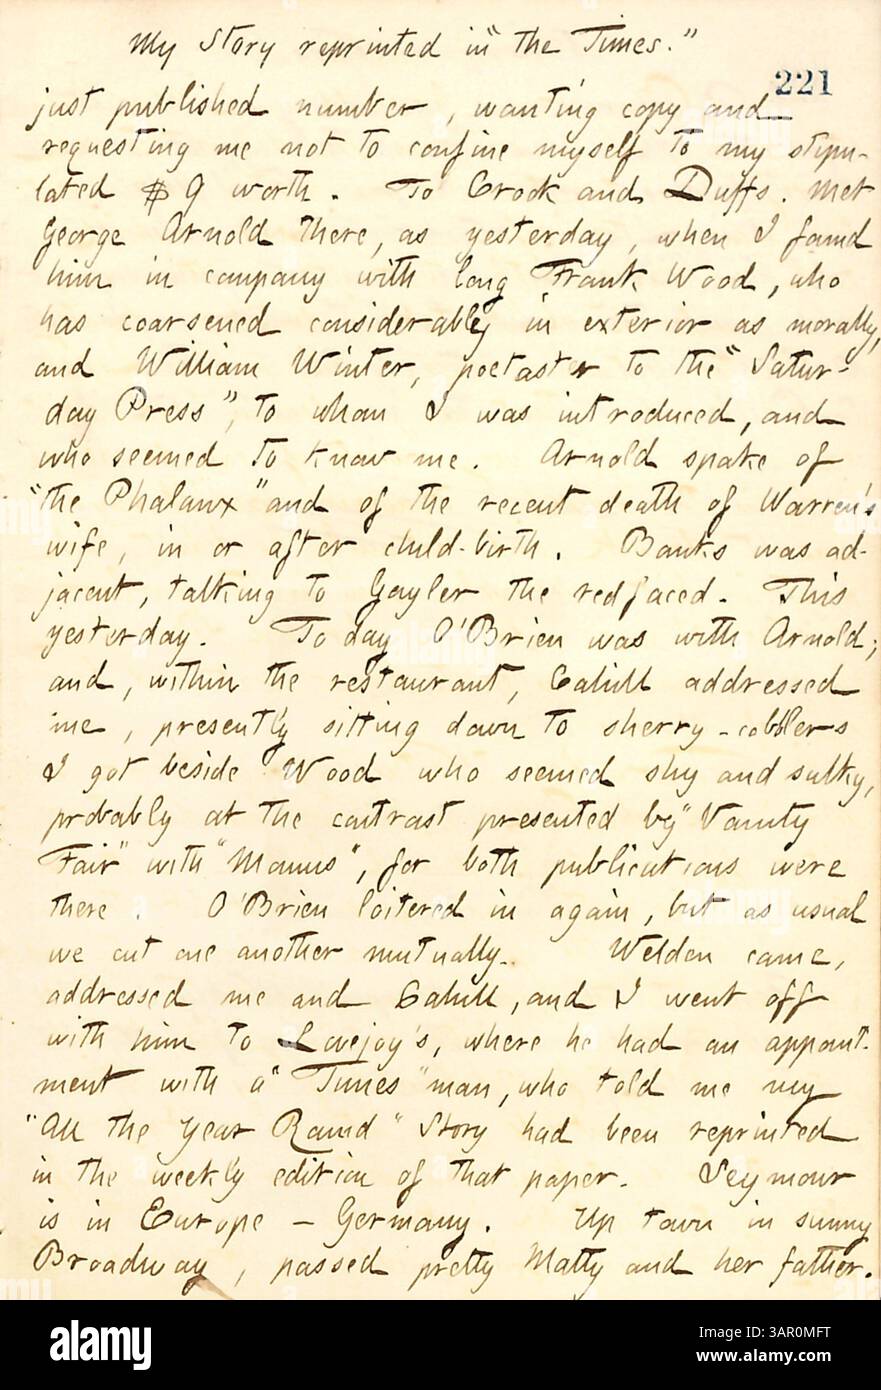 My Story reprinted in "the Times."
221
just published number, wanting copy and
requesting me not to confine myself to my stipu-
lated $9 worth. To Crook and Duffs. Met
George Arnold there, as yesterday, when I found
him in company with long Frank Wood, who
has coarsened considerably in exterior as morally,
and William Winter, poetaster to the "Satur-
day Press", to whom I was introduced, and
who seemed to know me. Arnold spake of
"the Phalanx" and of the recent death of Warren's
wife, in or after child-birth. Banks was ad-
jacent, talking to Gayler the redfaced. This
yesterday. To day O'Brien was with Arnold;
and, within the restaurant, Cahill addressed
me, presently sitting down to sherry-cobblers
I got beside Wood who seemed shy and sulky,
probably at the contrast presented by "Vanity
Fair" with "Momus", for both publications were
there. O'Brien loitered in again, but as usual
we cut one another mutually. Welden came,
addressed me and Cahill, and I went off
with him to Lovejoy's, where he had an appoint-
ment with a "Times" man, who told me my
"All the Year Round" Story had been reprinted
in the weekly edition of that paper. Seymour
is in Europe - Germany. Up town in sunny
Broadway, passed pretty Matty and her father.
alamy
Image ID: 3AR0MFT
www.alamy.com